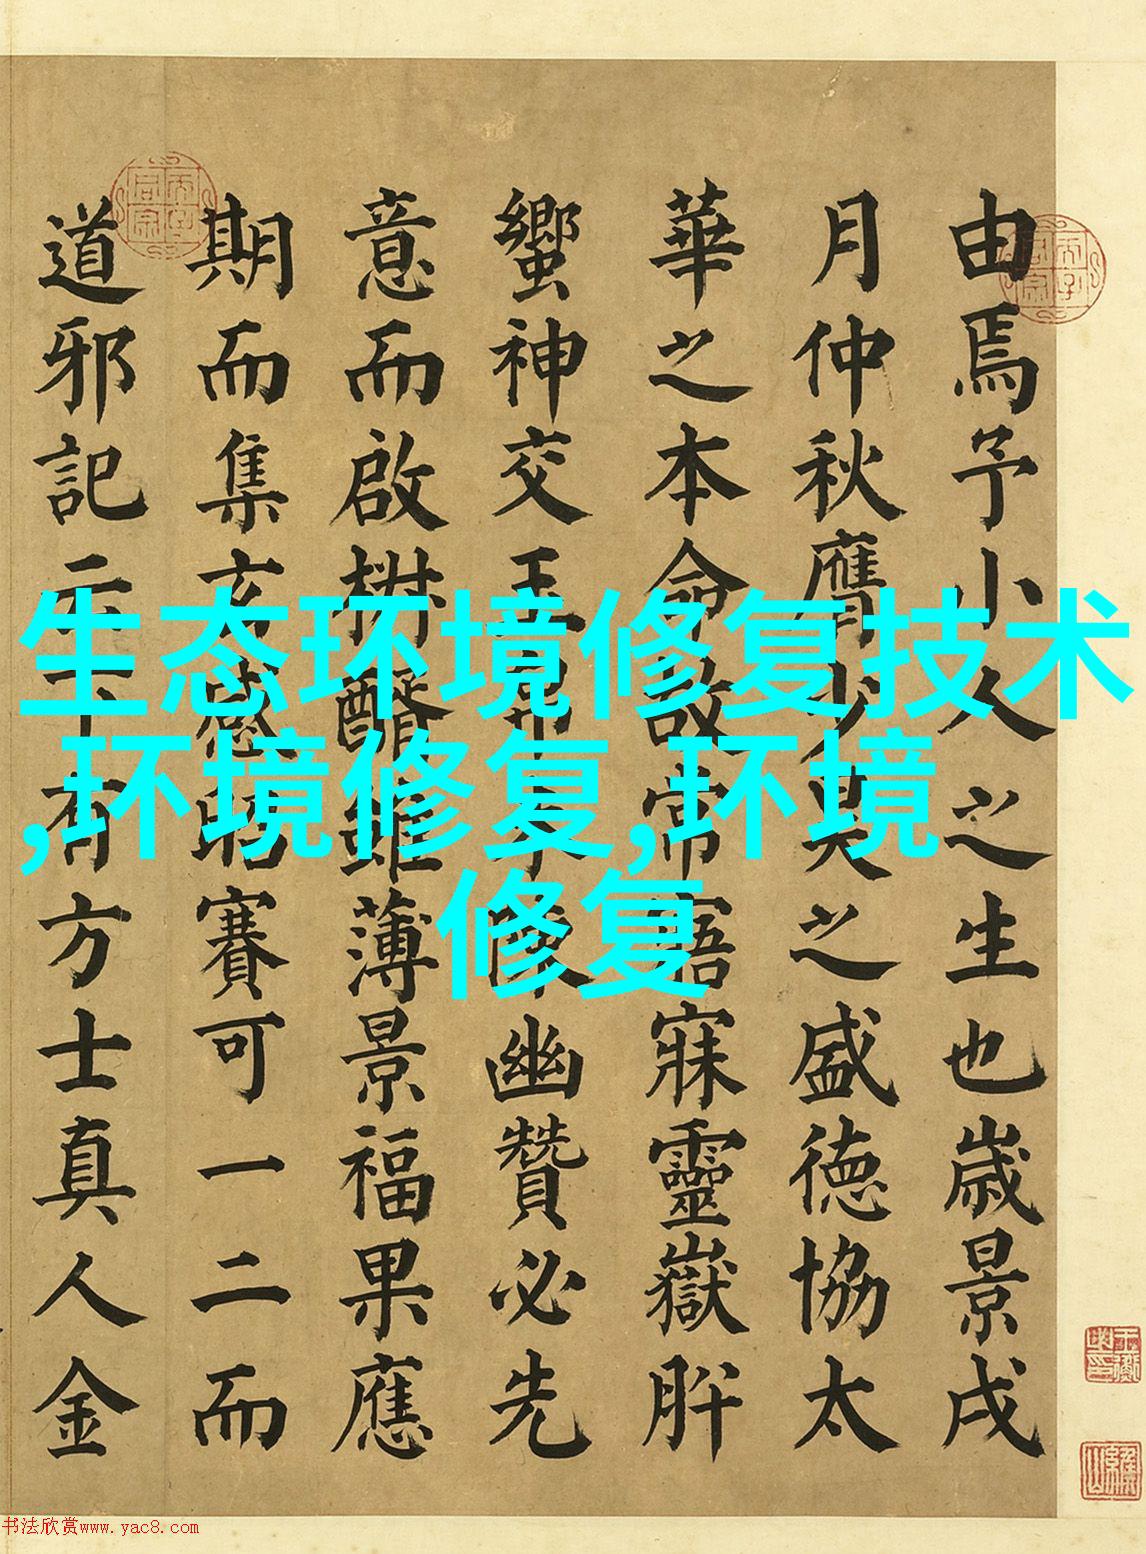 由焉予小人之生也歲景戌
月仲秋膺少昊之盛德協太
華之本命故常寤寐靈嶽肸
蠁神交幽贊必先
意而啟醮雖薄景福果應
期而集玄感昭賽可一二而
道邪記有方士真人金
生态环境修复技术
,环境修复,环境
修复
书法欣赏www.yac8.com